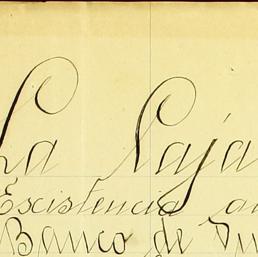 La Caja
Existencia
Banco de